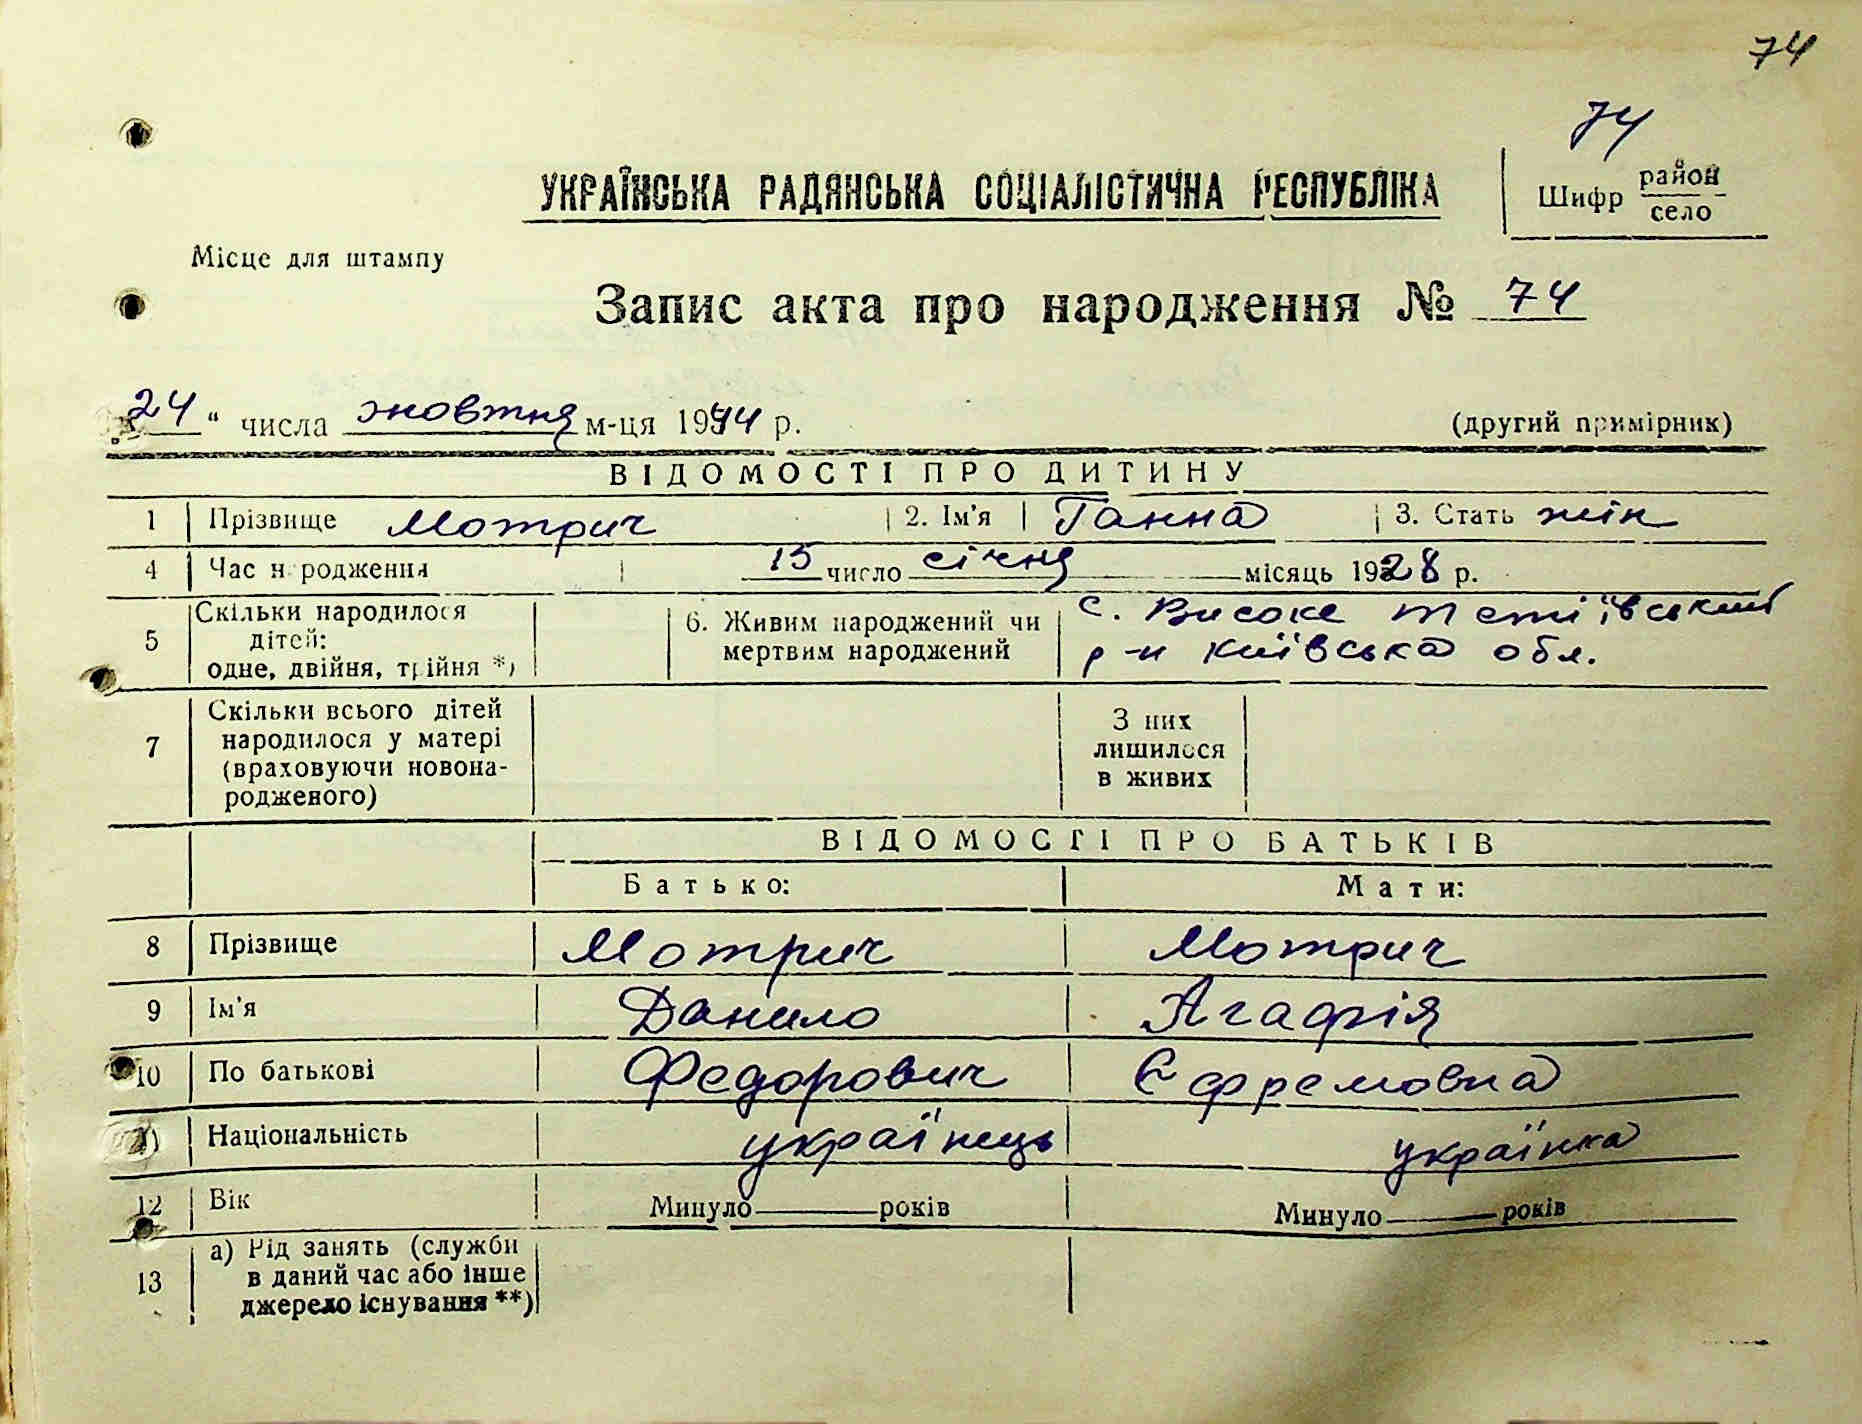 74
74
УКРАЇНСЬКА РАДЯНСЬКА СОЦІАЛІСТИЧНА РЕСПУБЛІКА
Шифр район
село
Місце для штампу
Запис акта про народження № 74
24 " числа жовтня м-ця 1974 р. (другий примірник)
ВІДОМОСТІ ПРО ДИТИНУ
1 Прізвище Мотрич 2. Ім'я Ганна 3. Стать жін
4 Час народження 15 число січня місяць 1928 р.
5 Скільки народилося
дітей:
одне, двійня, трійня *)
6. Живим народжений чи
мертвим народжений
с. Високе Тетіївський
р-н Київська обл.
7 Скільки всього дітей
народилося у матері
(враховуючи новона-
родженого)
З них
лишилося
в живих
ВІДОМОСТІ ПРО БАТЬКІВ
Батько: Мати:
8 Прізвище Мотрич Мотрич
9 Ім'я Данило Агафія
10 По батькові Федорович Єфремовна
11 Національність українець українка
12 Вік Минуло років Минуло років
13 а) Рід занять (служби
в даний час або інше
джерело існування **)